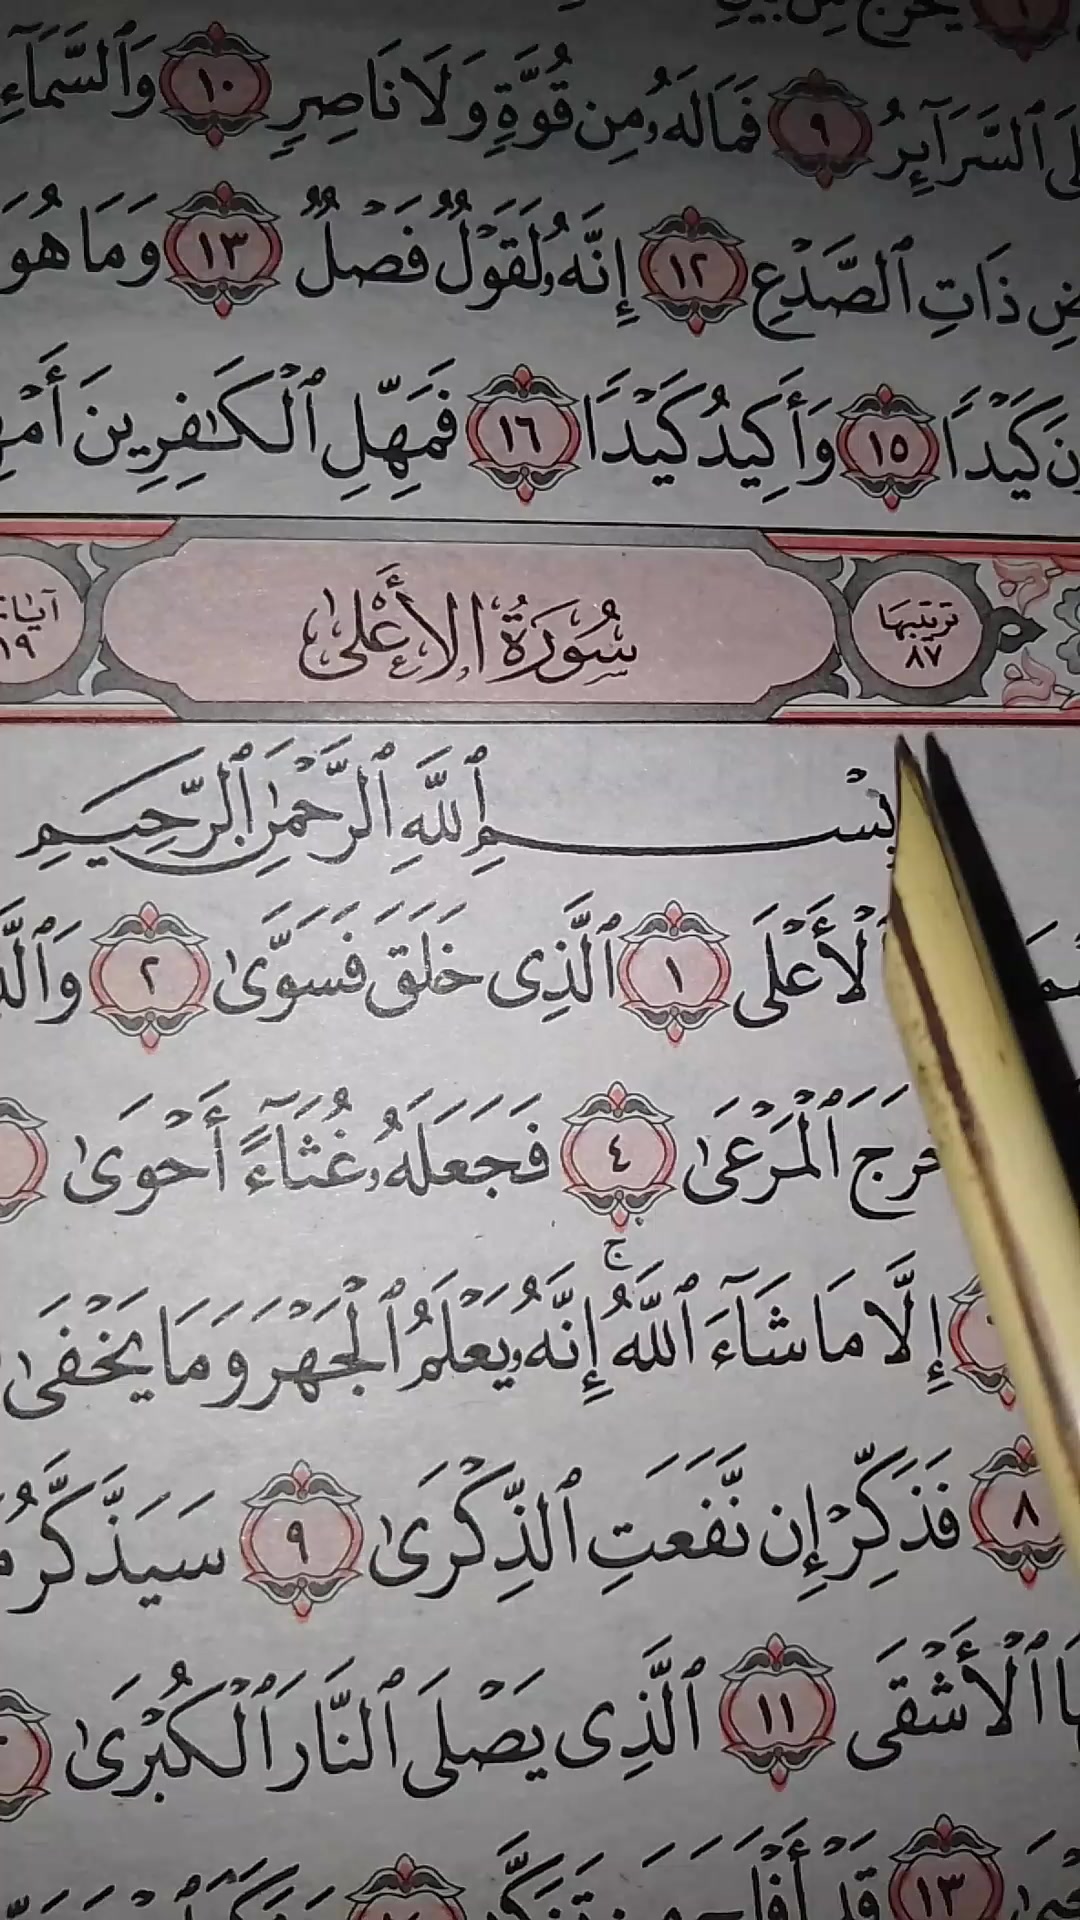 يَخْرُجُ مِنۢ بَيْنِ
ٱلسَّرَآئِرُ ٩ فَمَا لَهُۥ مِن قُوَّةٍ وَلَا نَاصِرٍ ١٠ وَٱلسَّمَآءِ
ذَاتِ ٱلصَّدْعِ ١٢ إِنَّهُۥ لَقَوْلٌ فَصْلٌ ١٣ وَمَا هُوَ
كَيْدًا ١٥ وَأَكِيدُ كَيْدًا ١٦ فَمَهِّلِ ٱلْكَٰفِرِينَ
ترتيبها ٨٧ سُورَةُ الأَعْلَىٰ ١٩
بِسْمِ ٱللَّهِ ٱلرَّحْمَٰنِ ٱلرَّحِيمِ
ٱلْأَعْلَى ١ ٱلَّذِى خَلَقَ فَسَوَّىٰ ٢
ٱلْمَرْعَىٰ ٤ فَجَعَلَهُۥ غُثَآءً أَحْوَىٰ
إِلَّا مَا شَآءَ ٱللَّهُ ۚ إِنَّهُۥ يَعْلَمُ ٱلْجَهْرَ وَمَا يَخْفَىٰ
٨ فَذَكِّرْ إِن نَّفَعَتِ ٱلذِّكْرَىٰ ٩ سَيَذَّكَّرُ
ٱلْأَشْقَى ١١ ٱلَّذِى يَصْلَى ٱلنَّارَ ٱلْكُبْرَىٰ
١٣ قَدْ أَفْلَحَ مَن تَزَكَّىٰ